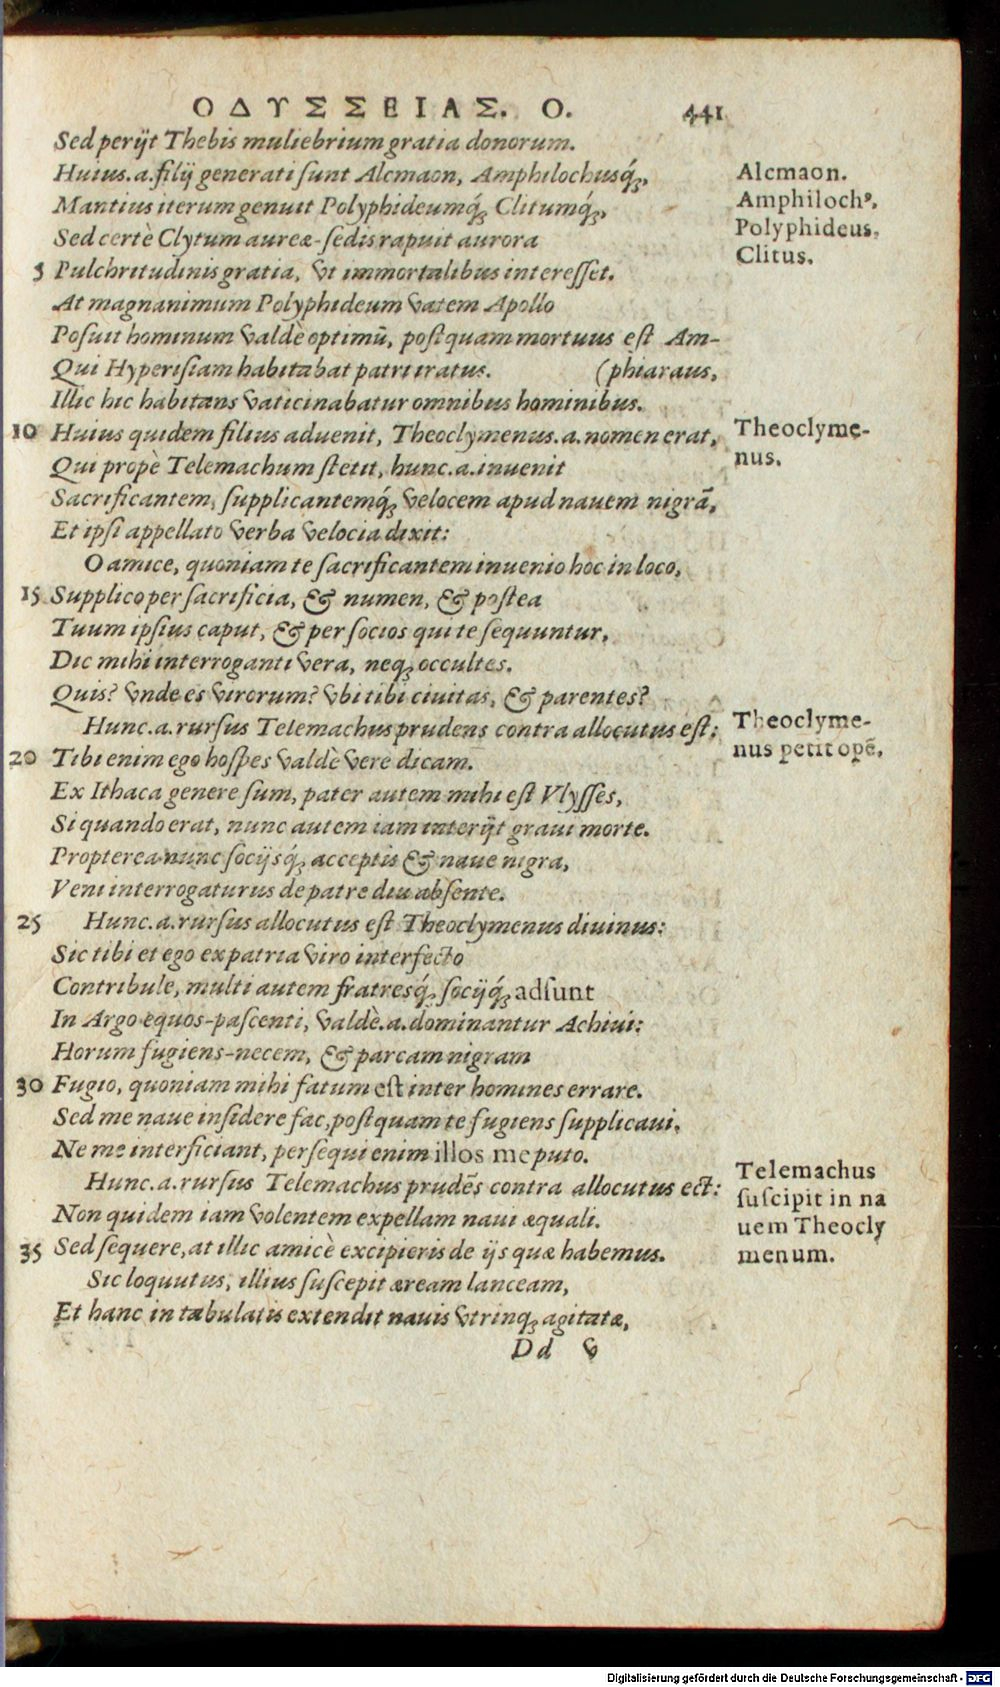 ΟΔΥΣΣΕΙΑΣ. Ο. 441
Sed perijt Thebis muliebrium gratia donorum.
Huius.a.filij generati sunt Alcmaon, Amphilochusq́;,
Mantius iterum genuit Polyphideumq́; Clitumq́;,
Sed certè Clytum aureæ-sedis rapuit aurora
5 Pulchritudinis gratia, vt immortalibus interesset.
At magnanimum Polyphideum vatem Apollo
Posuit hominum valdè optimū, postquam mortuus est Am-
Qui Hyperisiam habitabat patri iratus. (phiaraus,
Illic hic habitans vaticinabatur omnibus hominibus.
10 Huius quidem filius aduenit, Theoclymenus.a.nomen erat,
Qui propè Telemachum stetit, hunc.a.inuenit
Sacrificantem, supplicantemq́; velocem apud nauem nigrā,
Et ipsi appellato verba velocia dixit:
O amice, quoniam te sacrificantem inuenio hoc in loco,
15 Supplico per sacrificia, & numen, & postea
Tuum ipsius caput, & per socios qui te sequuntur,
Dic mihi interroganti vera, neq; occultes.
Quis? vnde es virorum? vbi tibi ciuitas, & parentes?
Hunc.a.rursus Telemachus prudens contra allocutus est:
20 Tibi enim ego hospes valdè vere dicam.
Ex Ithaca genere sum, pater autem mihi est Vlysses,
Si quando erat, nunc autem iam interijt graui morte.
Propterea nunc socijsq́; acceptis & naue nigra,
Veni interrogaturus de patre diu absente.
25 Hunc.a.rursus allocutus est Theoclymenus diuinus:
Sic tibi et ego ex patria viro interfecto
Contribule, multi autem fratresq́; socijq́; adsunt
In Argo equos-pascenti, valdè.a.dominantur Achiui:
Horum fugiens-necem, & parcam nigram
30 Fugio, quoniam mihi fatum est inter homines errare.
Sed me naue insidere fac, postquam te fugiens supplicaui,
Ne me interficiant, persequi enim illos me puto.
Hunc.a.rursus Telemachus prudēs contra allocutus est:
Non quidem iam volentem expellam naui æquali.
35 Sed sequere, at illic amicè excipieris de ijs quæ habemus.
Sic loquutus, illius suscepit æream lanceam,
Et hanc in tabulatis extendit nauis vtrinq; agitatæ,
Dd v
Alcmaon.
Amphilochꝰ.
Polyphideus.
Clitus.
Theoclyme-
nus.
Theoclyme-
nus petit opē.
Telemachus
suscipit in na
uem Theocly
menum.
Digitalisierung gefördert durch die Deutsche Forschungsgemeinschaft - DFG